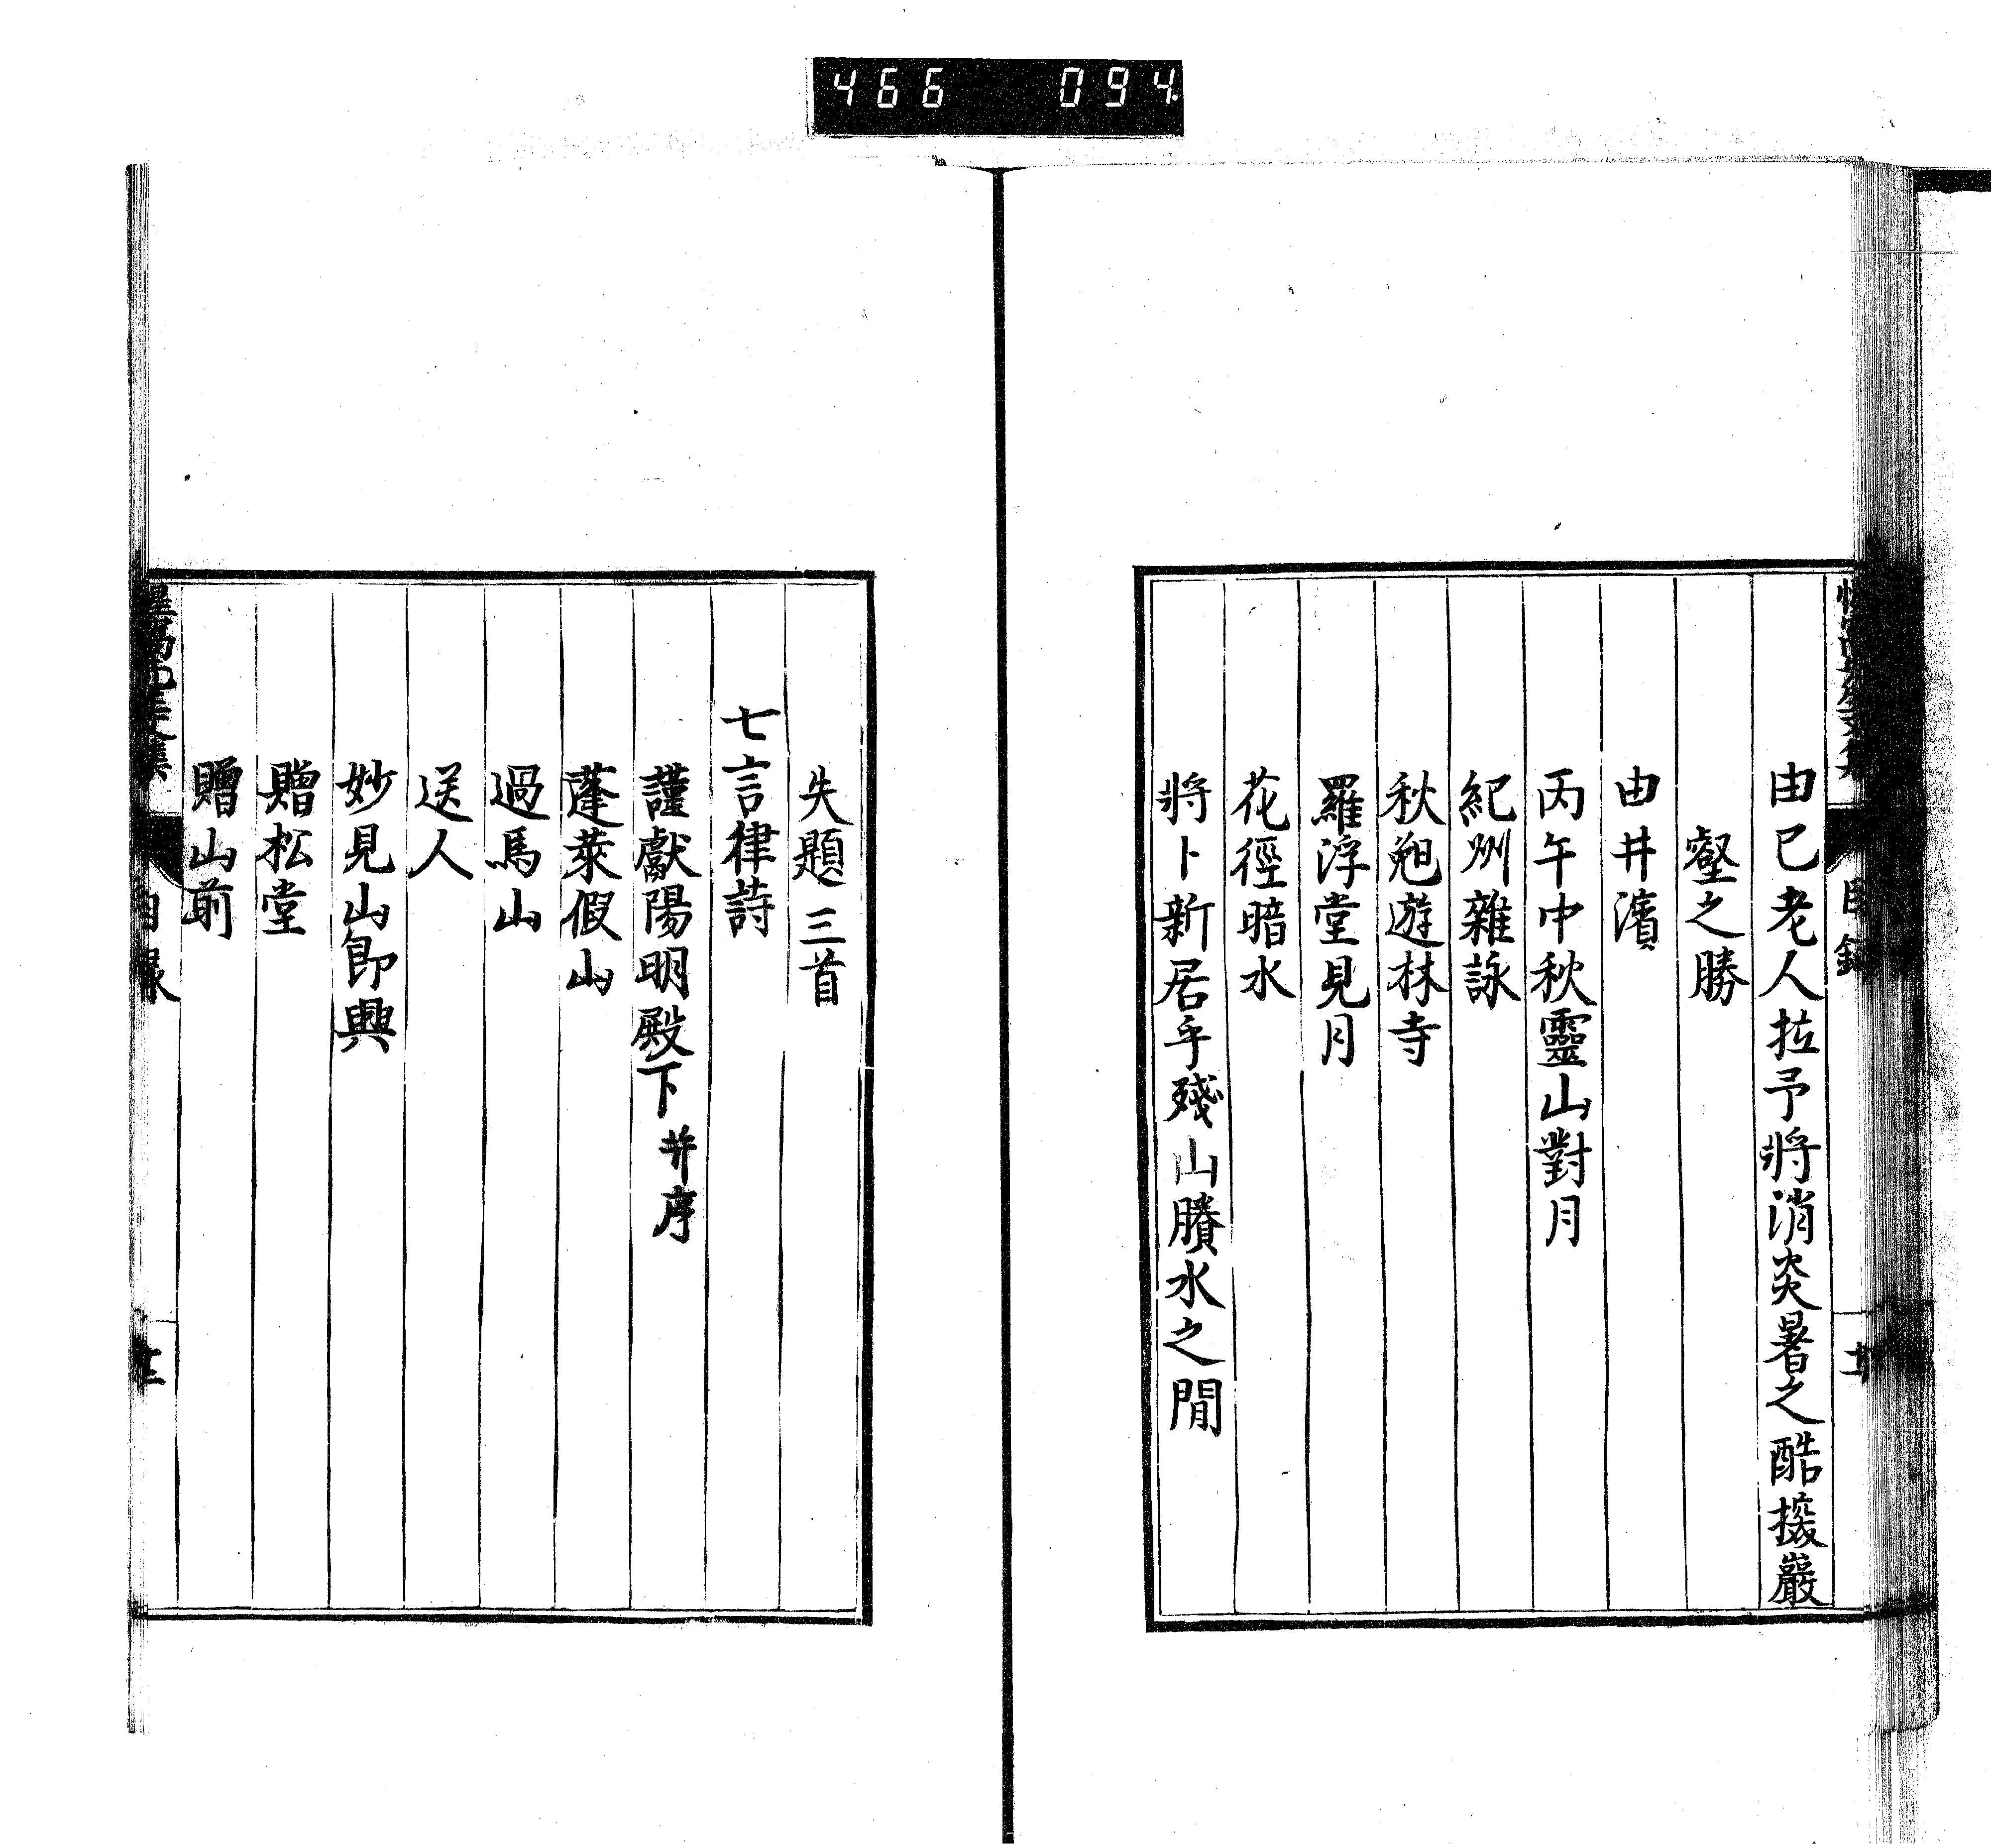 466 094
由已老人拉予將消炎暑之酷撥巖
壑之勝
由井濱
丙午中秋靈山對月
紀州雜詠
秋旭遊林寺
羅浮堂見月
花徑暗水
將卜新居乎殘山賸水之間
目錄
失題三首
七言律詩
謹獻陽明殿下 并序
蓬萊假山
過馬山
送人
妙見山即興
贈松堂
贈山前
目錄